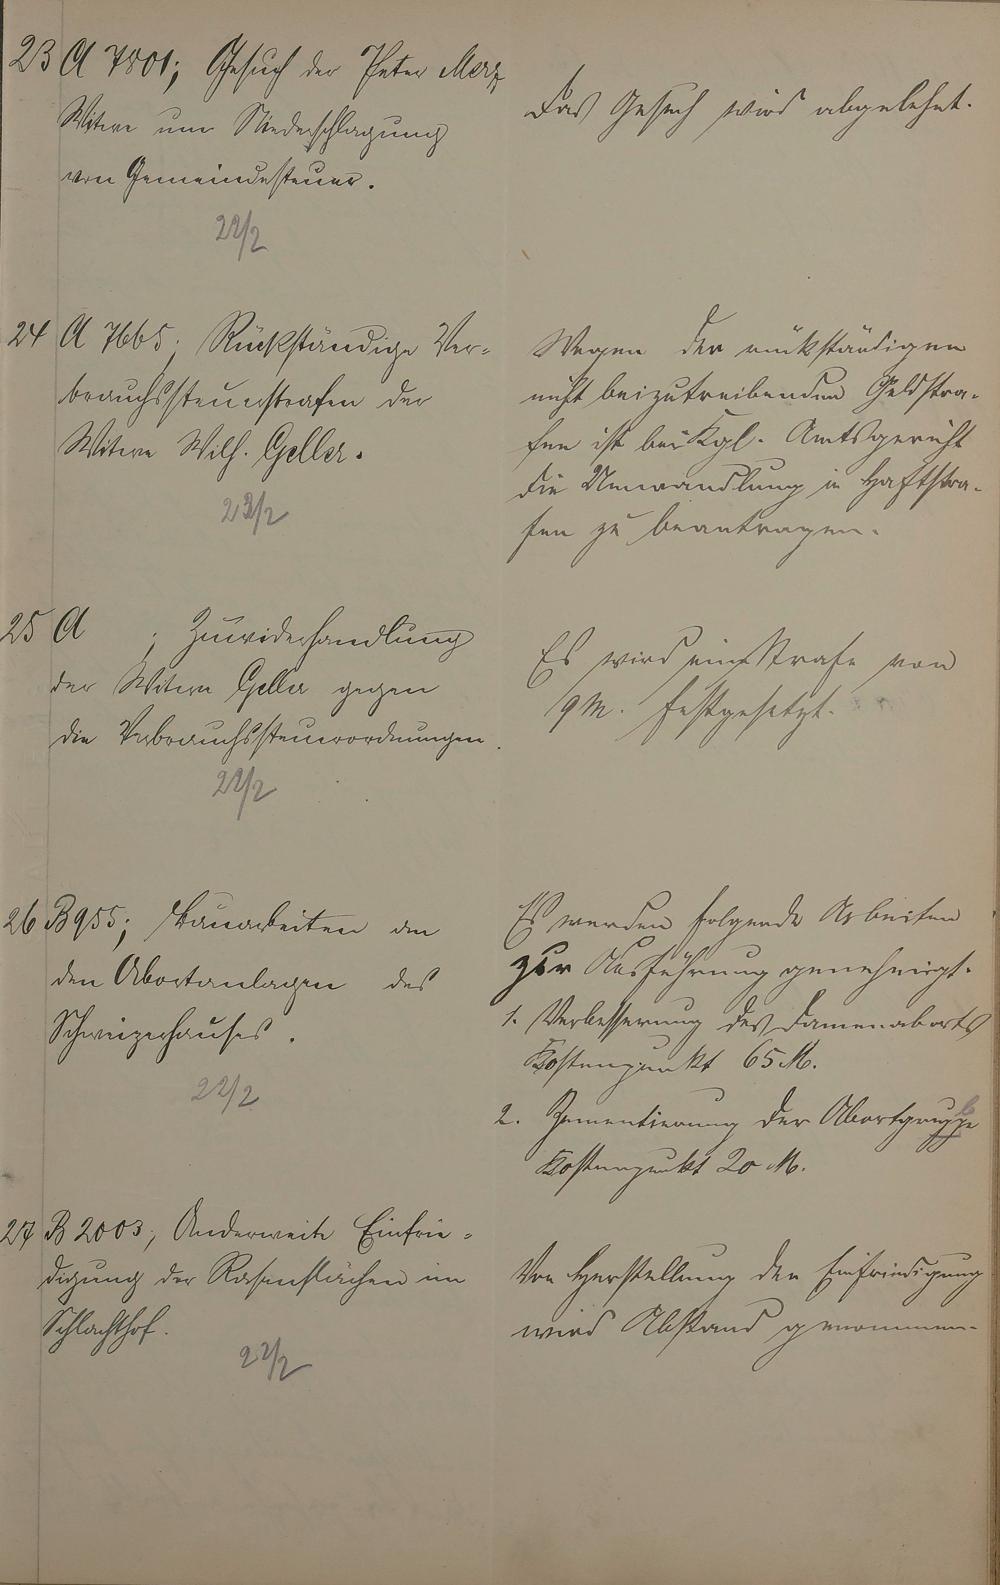 23 A 7801; Gesuch der Peter Merz
Witwe um Niederschlagung
von Gemeindesteuer.
22/2
Das Gesuch wird abgelehnt.
24 A 7665; Rückständige Ver-
brauchssteuerstrafen der
Witwe Wilh. Geller.
23/2
Wegen der rückständigen
nicht beizutreibenden Geldstra-
fen ist bei Kgl. Amtsgericht
die Umwandlung in Haftstra-
fen zu beantragen.
25 A ; Zuwiderhandlung
der Witwe Geller gegen
die Verbrauchssteuerordnungen.
22/2
Es wird eine Strafe von
9 M. festgesetzt.
26 B 955; Bauarbeiten an
den Abortanlagen des
Schweizerhauses.
22/2
Es werden folgende Arbeiten
zur Ausführung genehmigt.
1. Verbesserung des Damenaborts
Kostenpunkt 65 M.
2. Zementierung der Abortgruppe
Kostenpunkt 20 M.
27 B 2003; Anderweite Einfrie-
digung der Rasenflächen im
Schlachthof.
22/2
Von Herstellung der Einfriedigung
wird Abstand genommen.